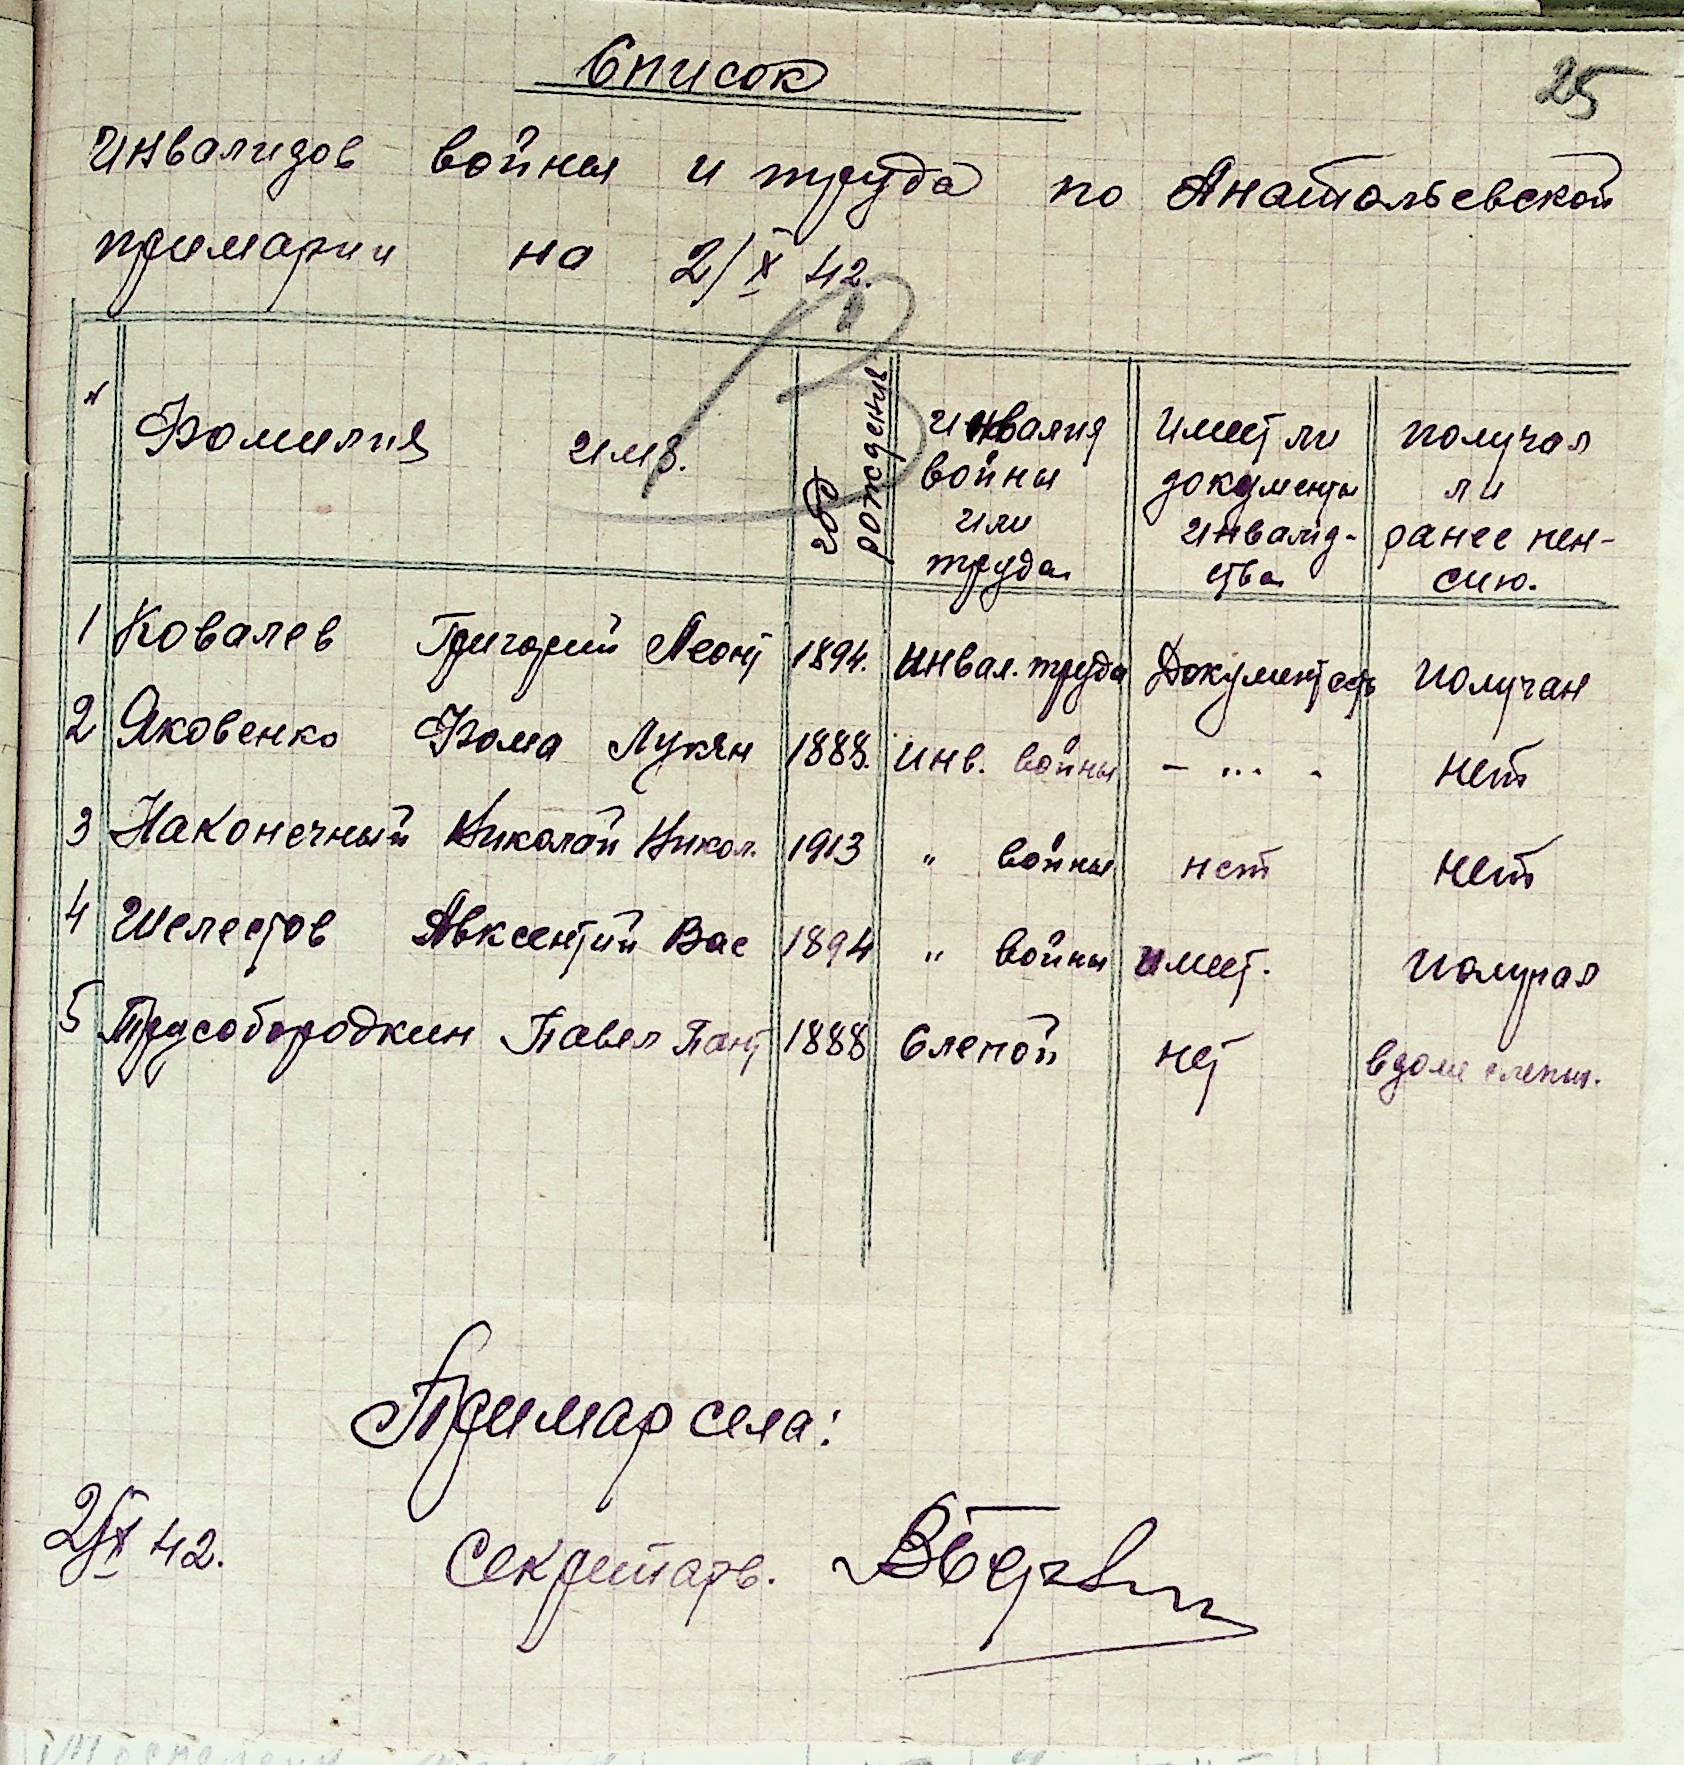 25
Список
инвалидов войны и труда по Анатольевской
примарии на 2/X 42.
№ Фамилия имя. год рождения инвалид войны или труда имеет ли документы инвалид-ства получал ли ранее пен-сию.
1 Ковалев Григорий Леонт 1894. инвал. труда Документ есть получал
2 Яковенко Фома Лукян 1888. инв. войны - ... . нет
3 Наконечный Николай Никол. 1913 " войны нет нет
4 Шелестов Авксентий Вас 1894 " войны имеет. получал
5 Трусобородкин Павел Пант 1888 Слепой нет вдоме слепых.
Примар села:
2/X 42.
Секретарь.